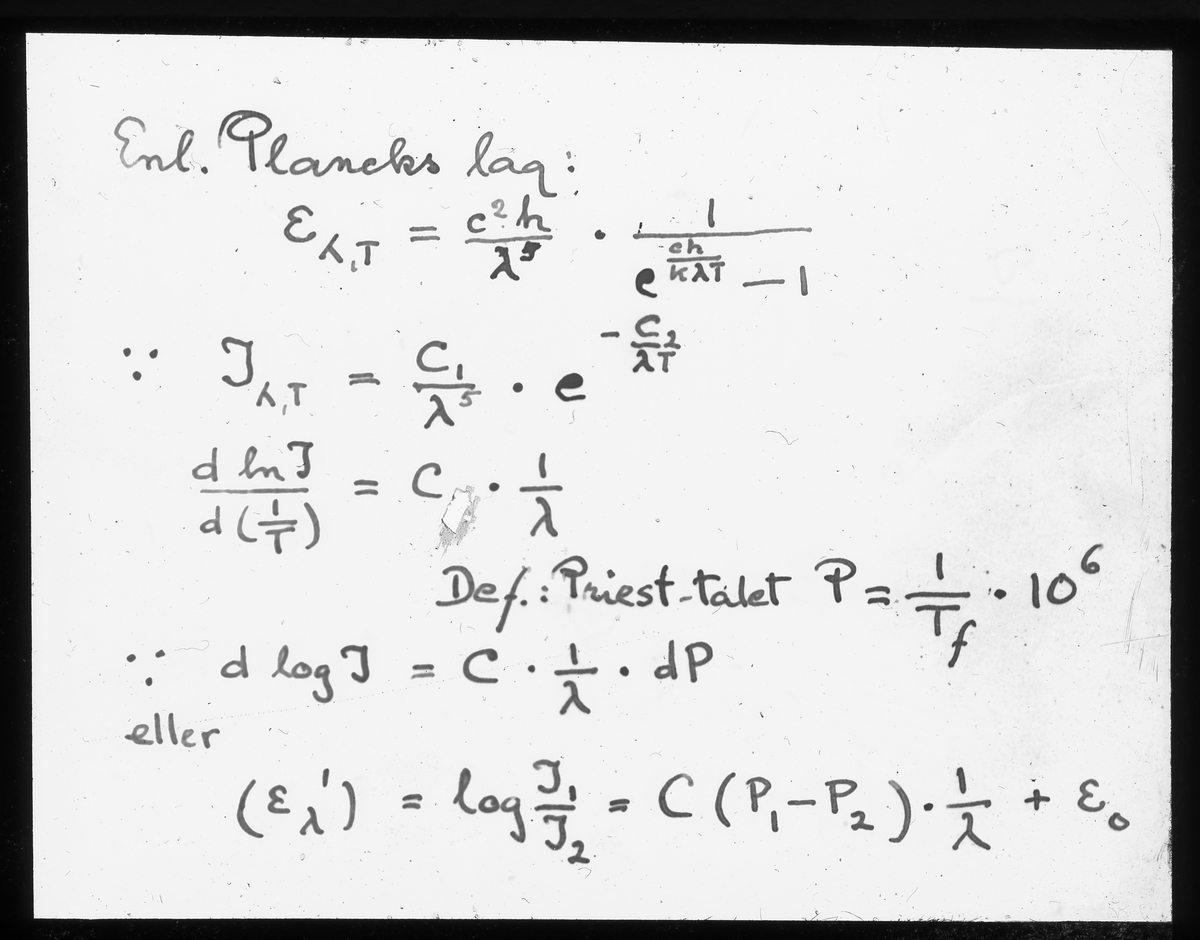 Enl. Plancks lag:
ε_λ,T = c²h/λ⁵ · 1/(e^(ch/kλT) − 1)
∵ J_λ,T = C₁/λ⁵ · e^(−C₂/λT)
d ln J / d(1/T) = C · 1/λ
Def.: Priest-talet P = 1/T_f · 10⁶
∵ d log J = C · 1/λ · dP
eller
(ε_λ') = log J₁/J₂ = C (P₁ − P₂) · 1/λ + ε₀